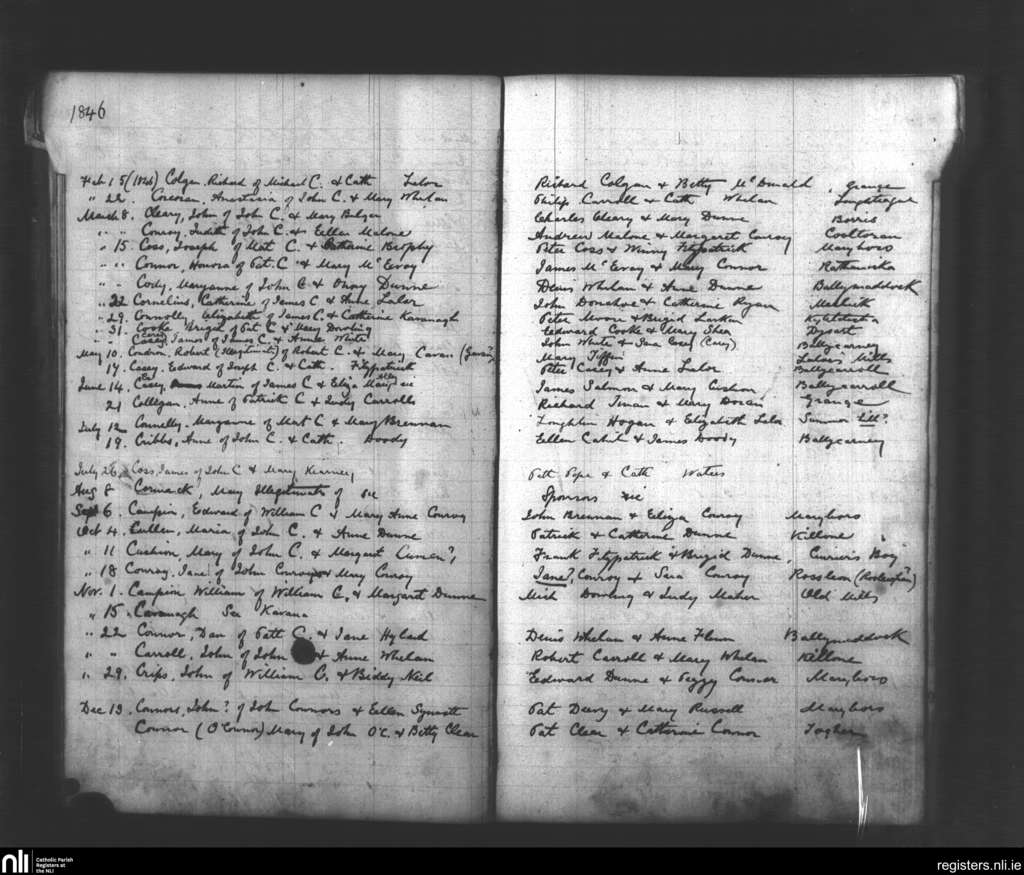 1846
Feb 15 (1846) Colgan, Richard of Michael C. & Cath Lalor Richard Colgan & Betty McDonald, Grange
" 22. Corcoran, Anastasia of John C. & Mary Whelan Philip Carroll & Cath Whelan
March 8. Cleary, John of John C. & Mary Bulger Charles Cleary & Mary Dunne Borris
" " Conroy, Judith of John C. & Ellen Malone Andrew Malone & Margaret Conroy Cooltoran
" 15. Coss, Joseph of Mat C. & Catherine Brophy Peter Coss & Winny Fitzpatrick Maryboro
" " Connor, Honora of Pat. C. & Mary McEvoy James McEvoy & Mary Connor
" " Cody, Maryanne of John C & Onny Dunne Denis Whelan & Anne Dunne Ballymaddock
" 22 Cornelius, Catherine of James C & Anne Lalor John Donahoe & Catherine Ryan
" 29. Connolly, Elizabeth of James C. & Catherine Kavanagh Peter Moore & Brigid Larkin
" 31. Cooke, Brigid of Pat C & Mary Dowling Edward Cooke & Mary Shea Dysart
" " Casey (Carey) James of James C. & Anne White John White & Casey (Carey) Ballycarney
May 10. Condron, Robert (Illegitimate) of Robert C. & Mary Cavan Mary Lalors Mills
17. Casey, Edward of Joseph C. & Cath. Fitzpatrick Peter Casey & Anne Lalor Ballycarroll
June 14. Casey, Martin of James C & Eliza sic James Salmon & Mary Cushon Ballycarroll
21 Collegan, Anne of Patrick C & Judy Carrolls Richard & Mary Doran Grange
July 12 Connelly, Maryanne of Mat C & Mary Brennan Loughlin Hogan & Elizabeth Lalor Summer hill?
19. Cribbs, Anne of John C. & Cath. Doody Ellen Cahil & James Doody Ballycarney
July 26, Coss, James of John C & Mary Kinney Patt Pope & Cath Waters
Aug 8 Cormack, Mary Illegitimate of sic Sponsors sic
Sept 6. Campin, Edward of William C & Mary Anne Conroy John Brennan & Eliza Conroy Maryboro
Oct 4. Cullen, Maria of John C. & Anne Dunne Patrick & Catherine Dunne Killone
" 11 Cushion, Mary of John C. & Margaret Curren? Frank Fitzpatrick & Brigid Dunne, Bog
" 18 Conroy, Jane of John Conroy & Mary Conroy Jane? Conroy & Sara Conroy Rossleon
Nov. 1. Campin William of William C. & Margaret Dunne Mich Dowling & Judy Maher Old Mills
" 15. Cavanagh See Kavana
" 22 Connor, Dan of Patt C. & Jane Hyland Denis Whelan & Anne Flinn Ballymaddock
" " Carroll, John of John & Anne Whelan Robert Carroll & Mary Whelan Killone
" 29. Crips, John of William C. & Biddy Neil Edward Dunne & Peggy Connor Maryboro
Dec 13. Connors, John? of John Connors & Ellen Pat Deevy & Mary Russell Maryboro
Connor (O'Connor) Mary of John O'C. & Betty Clear Pat Clear & Catherine Connor Togher
nli Catholic Parish Registers at the NLI
registers.nli.ie